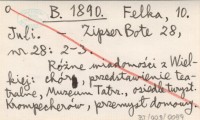 B. 1890. Felka, 10.
Juli. – Zipser Bote 28,
nr 28: 2-3.
Różne wiadomości z Wiel-
kiej: chór, przedstawienie tea-
tralne, Muzeum Tatrz., osiedle turyst.
Krompecherów, przemysł domowy.